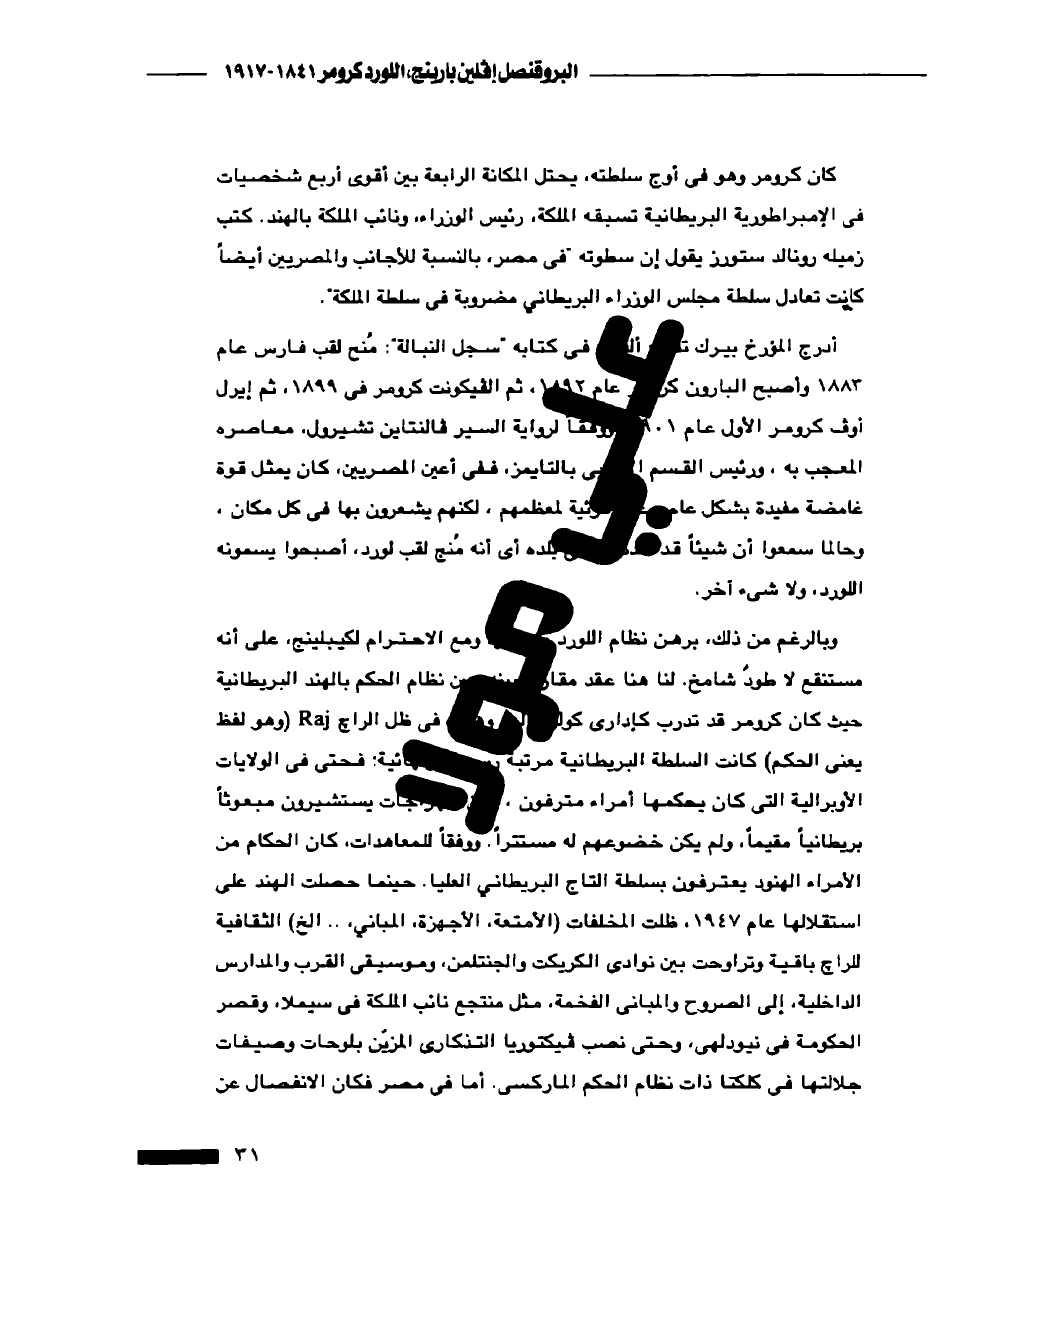 البروقنصل إڤلين بارينج، اللورد كرومر ١٨٤١-١٩١٧
كان كرومر وهو فى أوج سلطته، يحتل المكانة الرابعة بين أقوى أربع شخصيات
فى الإمبراطورية البريطانية تسبقه الملكة، رئيس الوزراء، ونائب الملكة بالهند. كتب
زميله رونالد ستورز يقول إن سطوته "فى مصر، بالنسبة للأجانب والمصريين أيضاً
كانت تعادل سلطة مجلس الوزراء البريطاني مضروبة فى سلطة الملكة".
أدرج المؤرخ بيرك فى كتابه "سجل النبالة": مُنح لقب فارس عام
١٨٨٣ وأصبح البارون عام ١٨٩٢، ثم الڤيكونت كرومر فى ١٨٩٩، ثم إيرل
أوف كرومر الأول عام ووفقاً لرواية السير ڤالنتاين تشيرول، معاصره
المعجب به ، ورئيس القسم بالتايمز، ففى أعين المصريين، كان يمثل قوة
غامضة مفيدة بشكل عام لمعظمهم ، لكنهم يشعرون بها فى كل مكان ،
وحالما سمعوا أن شيئاً بلده أى أنه مُنح لقب لورد، أصبحوا يسمونه
اللورد، ولا شىء آخر.
وبالرغم من ذلك، برهن نظام اللورد ومع الاحترام لكيبلينج، على أنه
مستنقع لا طودٌ شامخ. لنا هنا عقد بين نظام الحكم بالهند البريطانية
حيث كان كرومر قد تدرب كإدارى فى ظل الراج Raj (وهو لفظ
يعنى الحكم) كانت السلطة البريطانية مرتبة فحتى فى الولايات
الأوبرالية التى كان يحكمها أمراء مترفون ، يستشيرون مبعوثاً
بريطانياً مقيماً، ولم يكن خضوعهم له مستتراً. ووفقاً للمعاهدات، كان الحكام من
الأمراء الهنود يعترفون بسلطة التاج البريطاني العليا. حينما حصلت الهند على
استقلالها عام ١٩٤٧، ظلت المخلفات (الأمتعة، الأجهزة، المباني، .. الخ) الثقافية
للراج باقية وتراوحت بين نوادى الكريكت والجنتلمن، وموسيقى القرب والمدارس
الداخلية، إلى الصروح والمبانى الفخمة، مثل منتجع نائب الملكة فى سيملا، وقصر
الحكومة فى نيودلهى، وحتى نصب ڤيكتوريا التذكارى المزيّن بلوحات وصيفات
جلالتها فى كلكتا ذات نظام الحكم الماركسى. أما فى مصر فكان الانفصال عن
٣١